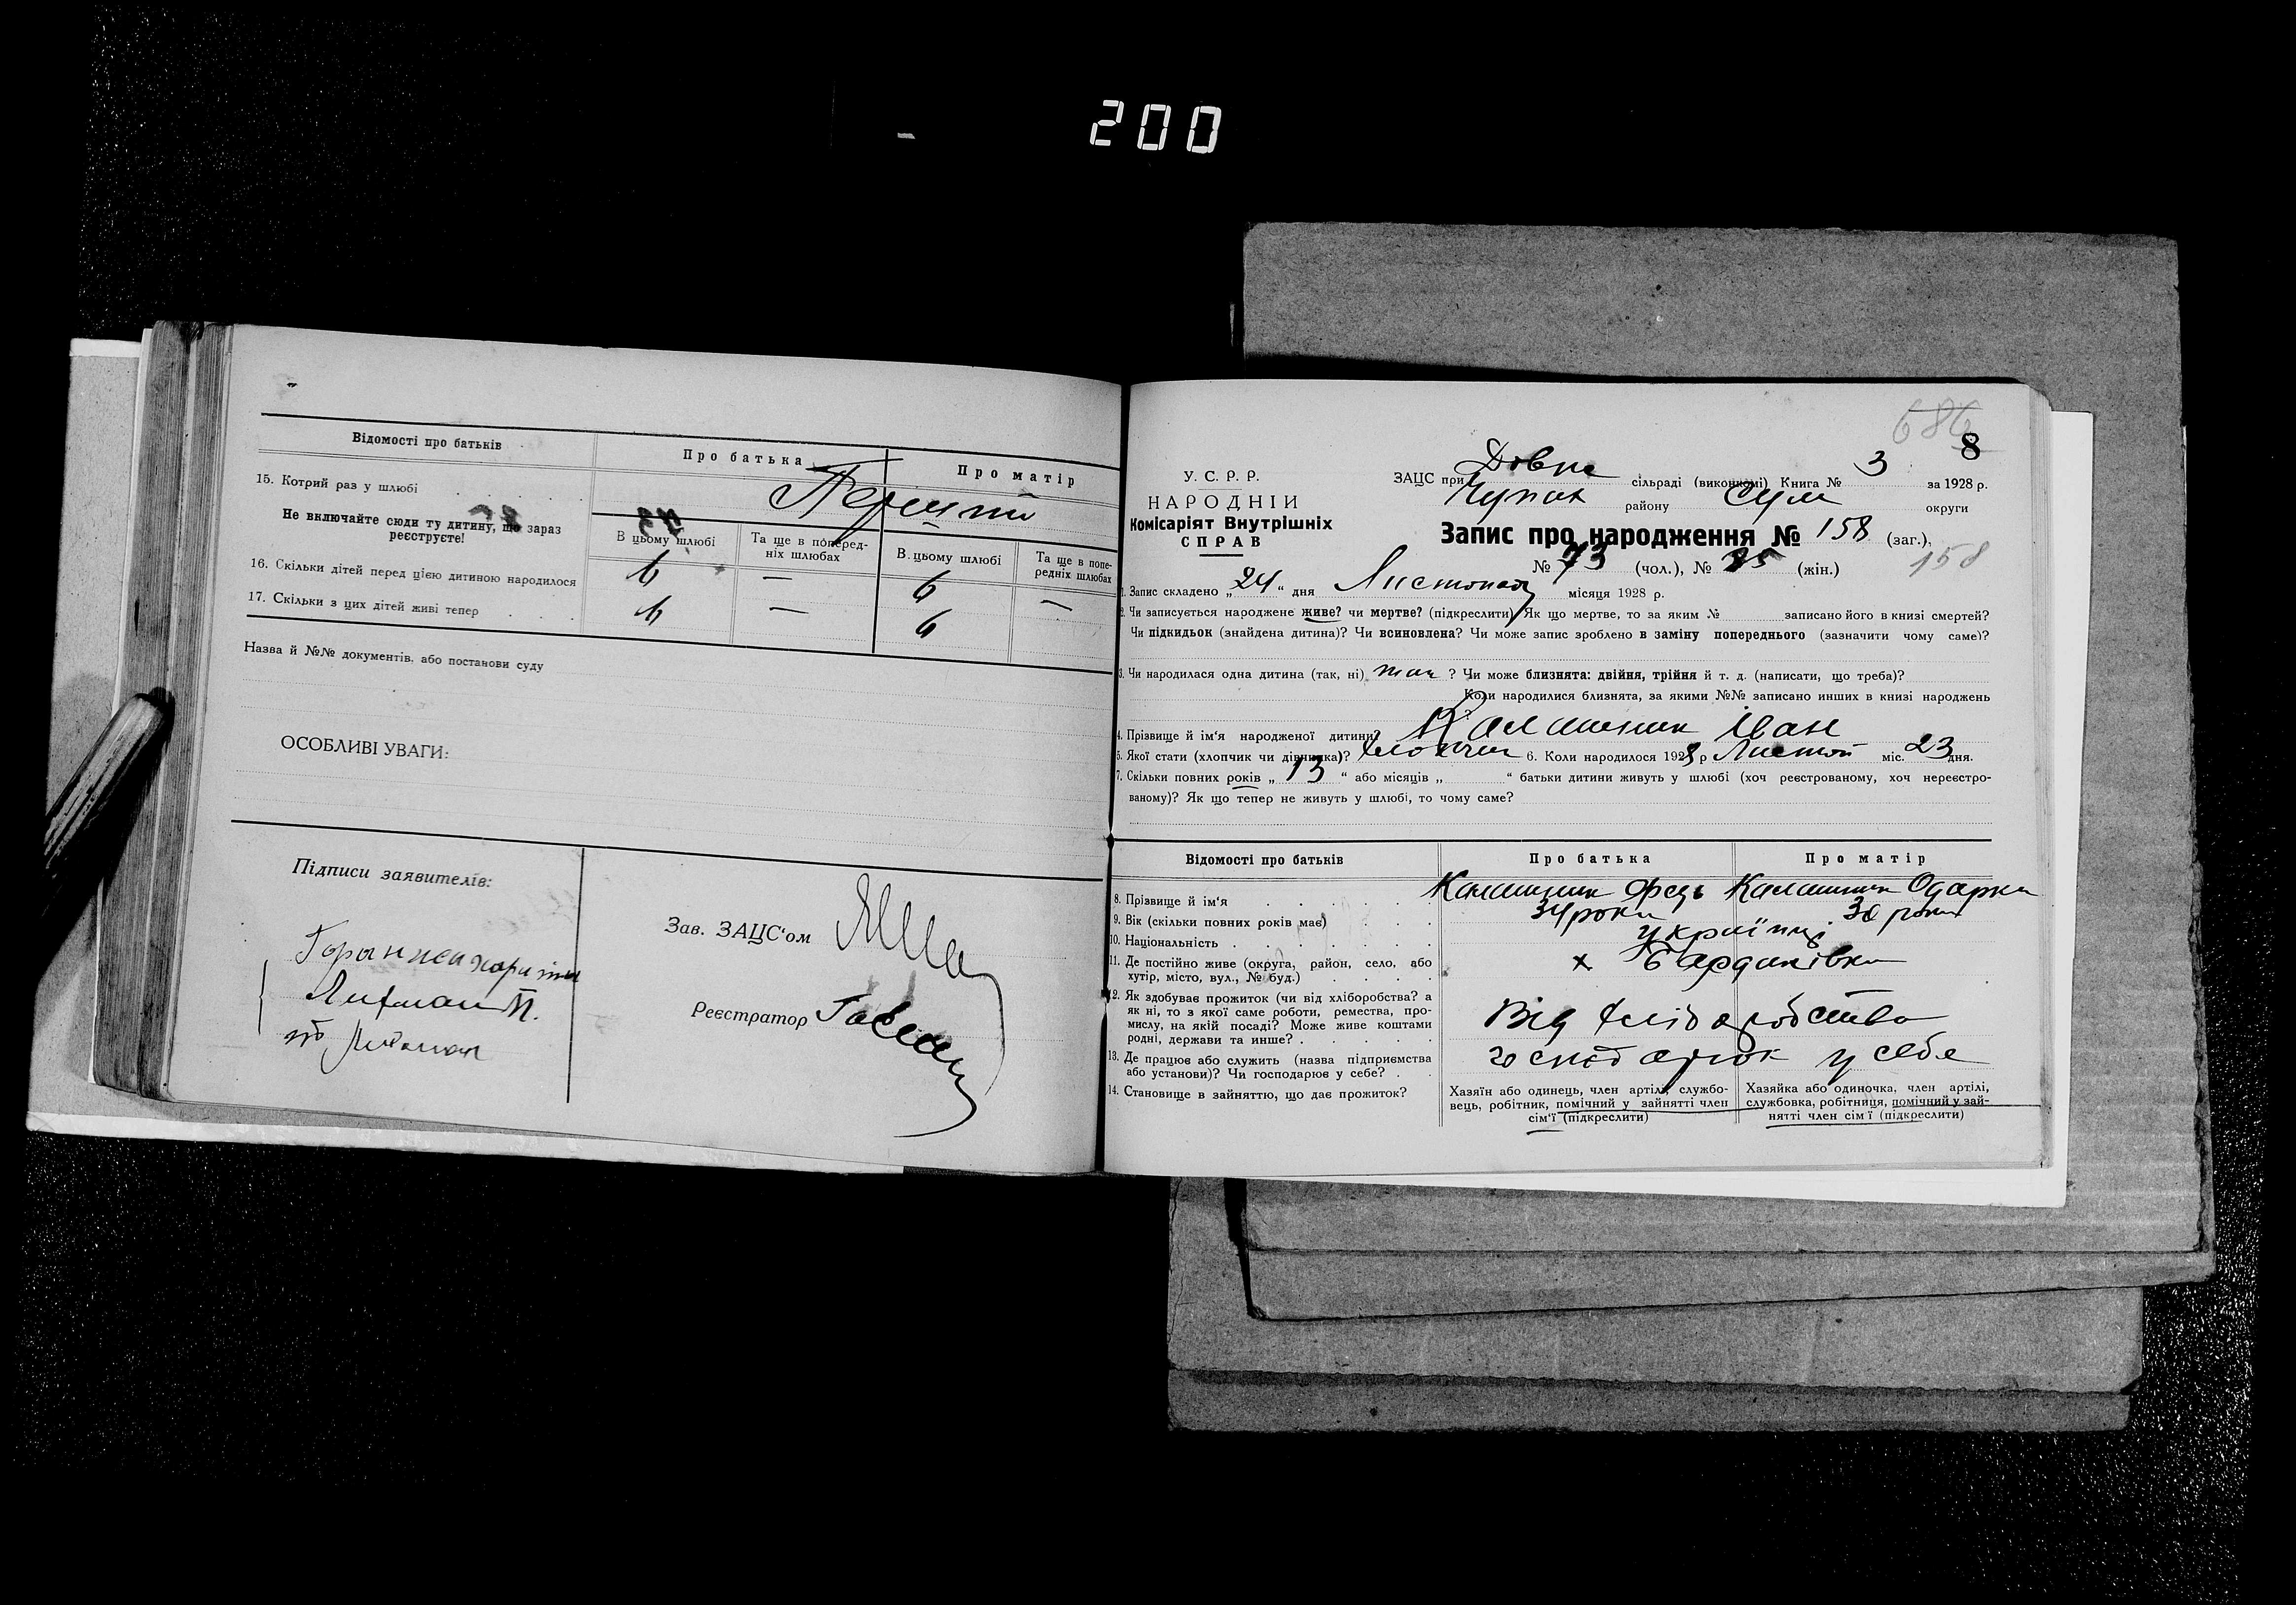 200
Відомості про батьків
Про батька
Про матір
15. Котрий раз у шлюбі
Перший
Не включайте сюди ту дитину, що зараз
реєструєте!
В цьому шлюбі
Та ще в поперед-
ніх шлюбах
В цьому шлюбі
Та ще в попе-
редніх шлюбах
16. Скільки дітей перед цією дитиною народилося
6 — 6 —
17. Скільки з цих дітей живі тепер
6 — 6
Назва й №№ документів, або постанови суду
ОСОБЛИВІ УВАГИ:
Підписи заявителів:
Зав. ЗАЦС'ом
Реєстратор
686
8
У. С. Р. Р.
НАРОДНІЙ
Комісаріят Внутрішніх
СПРАВ
ЗАЦС при сільраді (виконкомі) Книга № 3 за 1928 р.
району Сум округи
Запис про народження № 158 (заг.),
№ 73 (чол.), № 85 (жін.)
158
1. Запис складено „24“ дня Листопад місяця 1928 р.
2. Чи записується народжене живе? чи мертве? (підкреслити) Як що мертве, то за яким № записано його в книзі смертей?
Чи підкидьок (знайдена дитина)? Чи всиновлена? Чи може запис зроблено в заміну попереднього (зазначити чому саме)?
3. Чи народилася одна дитина (так, ні) так ? Чи може близнята: двійня, трійня й т. д. (написати, що треба)?
Коли народилися близнята, за якими №№ записано инших в книзі народжень
4. Прізвище й ім'я народженої дитини? Калашник Іван
5. Якої стати (хлопчик чи дівчинка)? хлопчик 6. Коли народилося 1928 р Листоп міс. 23 дня.
7. Скільки повних років „ 13 “ або місяців „ “ батьки дитини живуть у шлюбі (хоч реєстрованому, хоч нереєстро-
ваному)? Як що тепер не живуть у шлюбі, то чому саме?
Відомості про батьків
Про батька
Про матір
8. Прізвище й ім'я
Калашник Калашник Одарка
9. Вік (скільки повних років має)
34 роки роки
10. Національність
українці
11. Де постійно живе (округа, район, село, або
хутір, місто, вул., № буд.)
х Бардаківка
12. Як здобуває прожиток (чи від хліборобства? а
як ні, то з якої саме роботи, ремества, про-
мислу, на якій посаді? Може живе коштами
родні, держави та инше?
Від хліборобства
13. Де працює або служить (назва підприємства
або установи)? Чи господарює у себе?
у себе
14. Становище в зайняттю, що дає прожиток?
Хазяїн або одинець, член артілі, службо-
вець, робітник, помічний у зайнятті член
сім'ї (підкреслити)
Хазяйка або одиночка, член артілі,
службовка, робітниця, помічний у зай-
нятті член сім'ї (підкреслити)